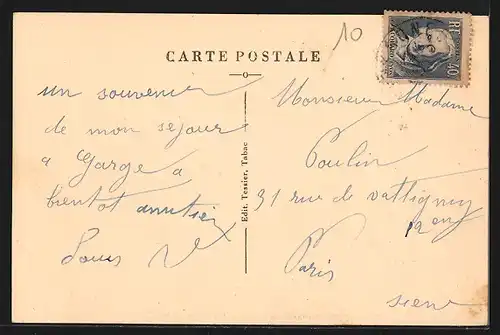 10
RF
40
CARTE POSTALE
un souvenir
de mon sejour
a Garge a
bientot amitiés
Louis
Edit. Tessier, Tabac
Monsieur Madame
Poulin
31 rue de Wattigny
12 em
Paris
seine